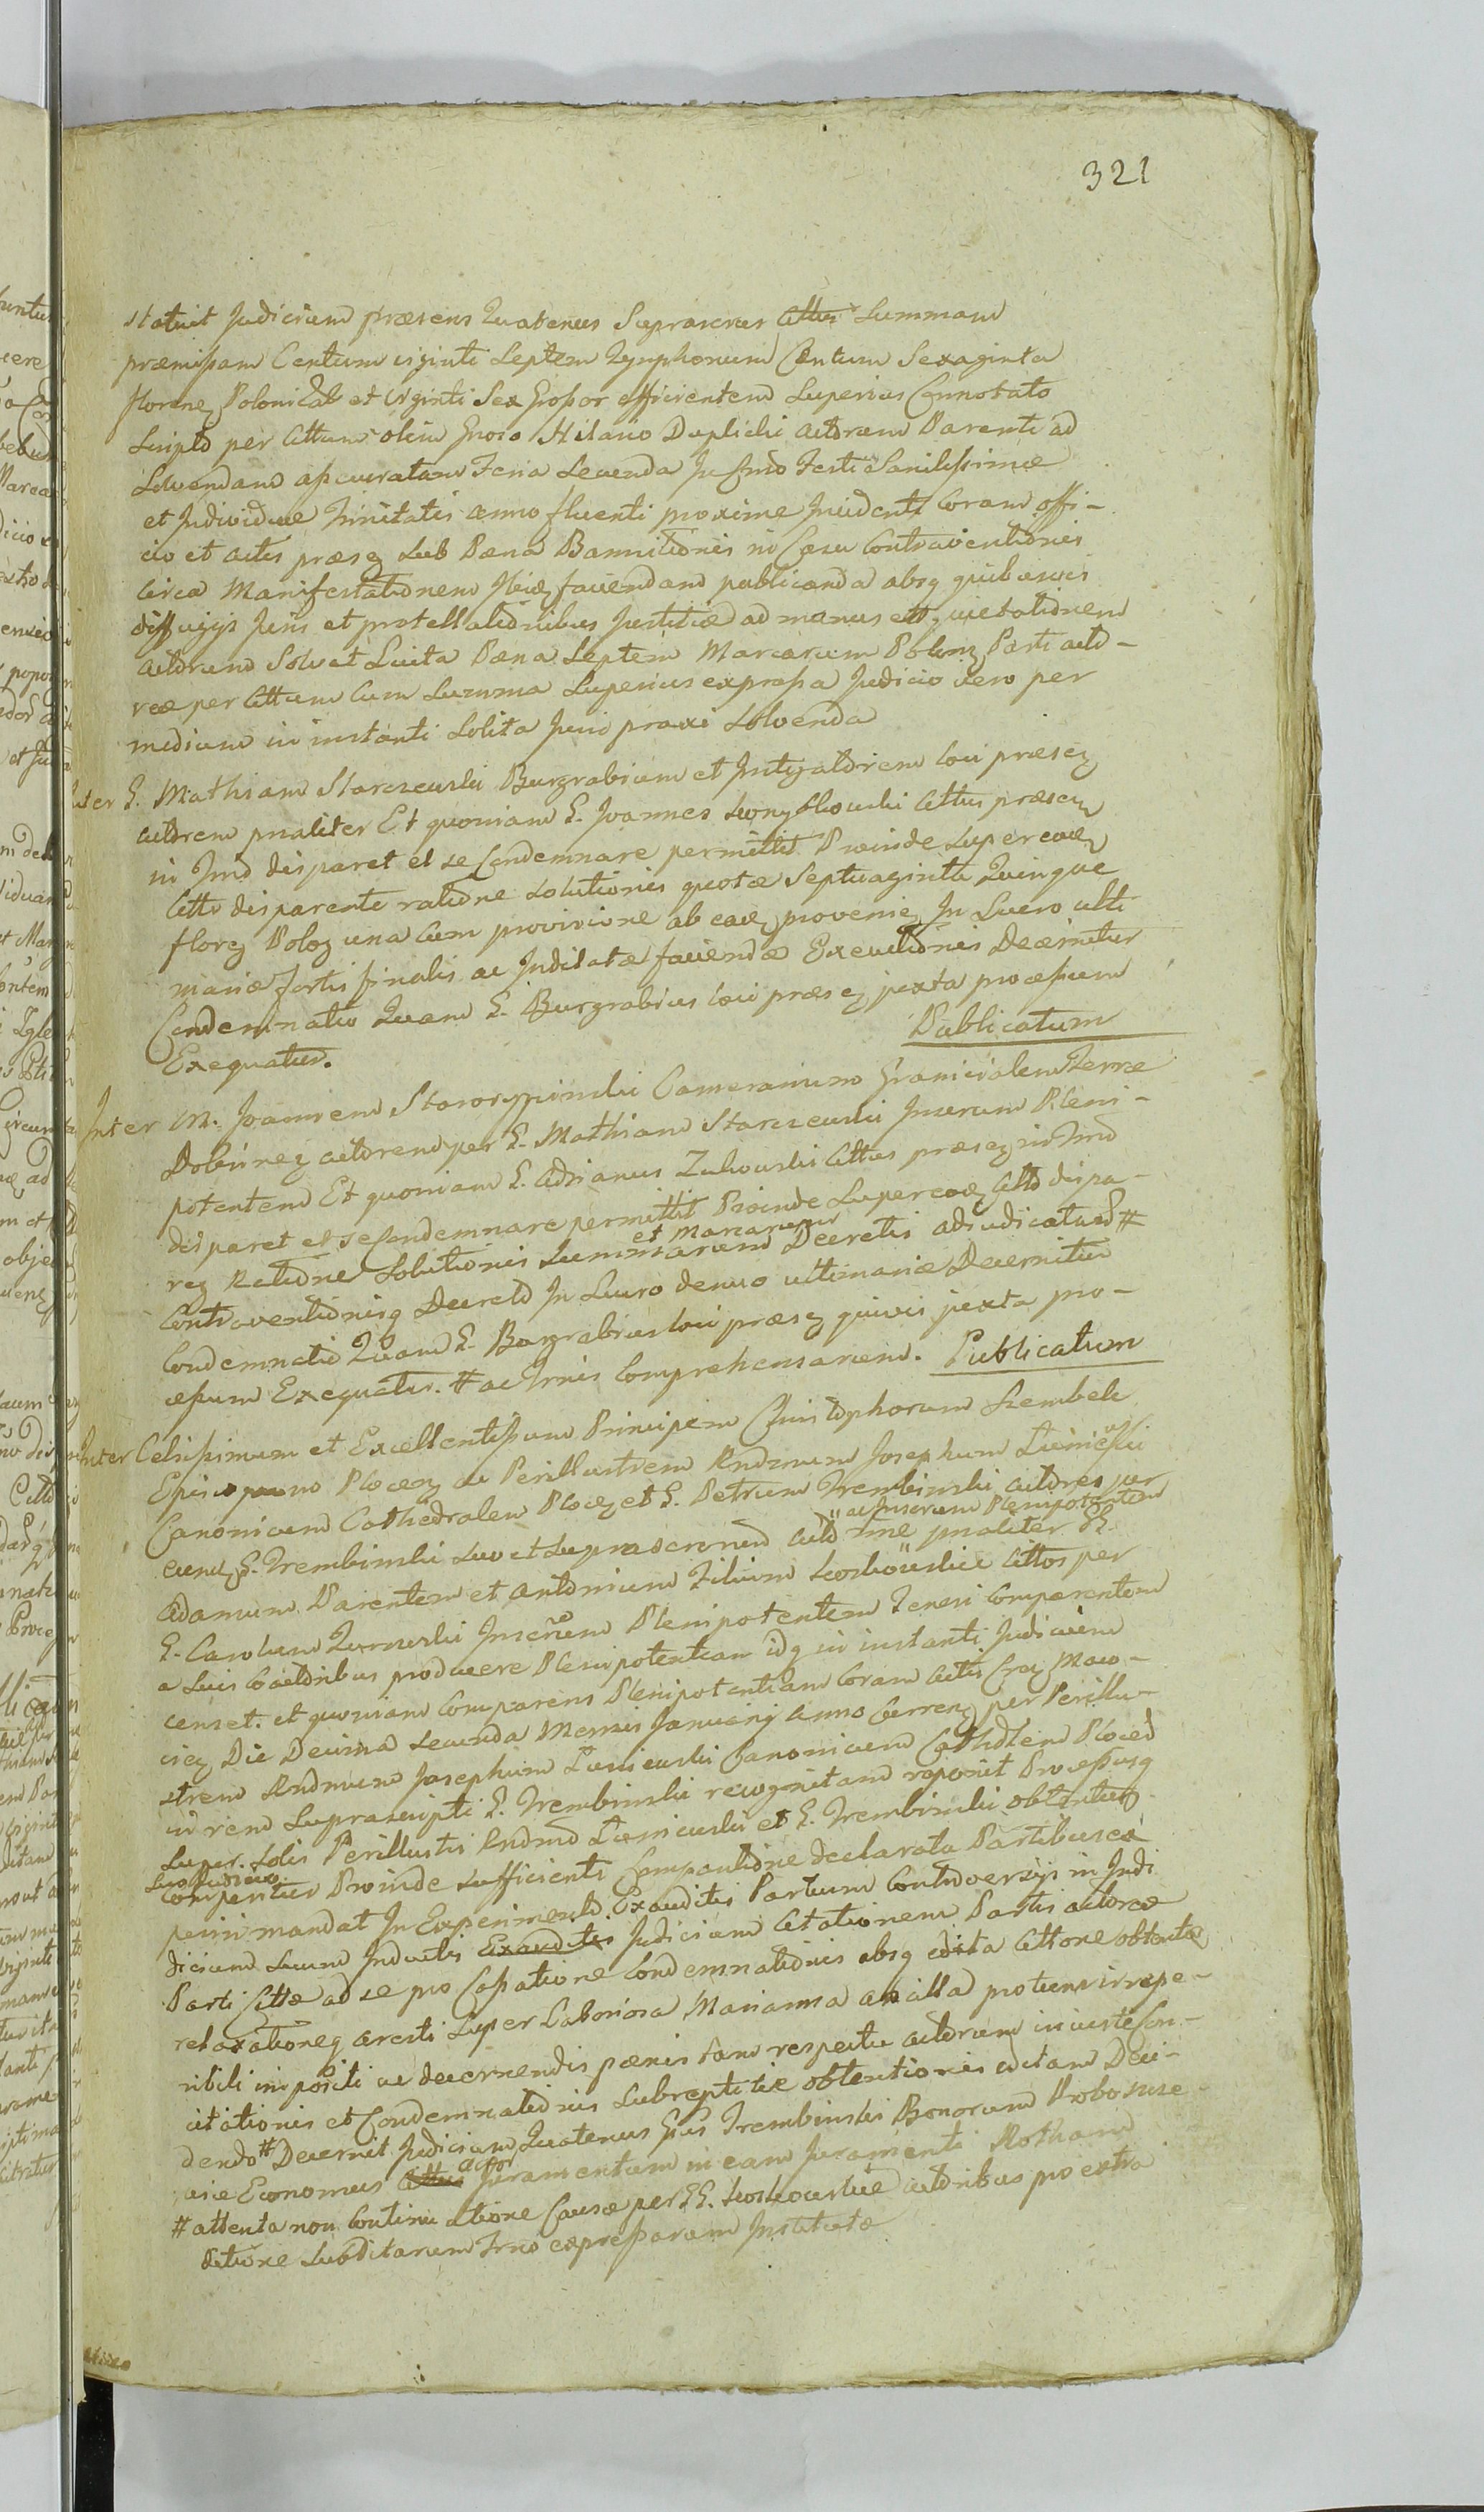 321
statuit Judicium præsens Quatenus Suprascrus Cittus Summam
præmissam Centum viginti Septem Tynphonum Centum Sexaginta
florenoꝝ Polonical et viginti Sex Grossor efficientem Superius Connotato
Scripto per Cittum olim Groso Hilario Duplicki actorum Parenti ad
Solvendam assecuratam Feria Secunda Jn Crastino Festi Sanctissimæ
et Jndividuæ Trinitatis anno fluenti proxime Jncidenti Coram offi-
cio et actis præsꝫ Sub Pæna Bannitionis in Casu Contraventionis
Circa Manifestationem faciendam publicanda absqꝫ quibusvis
diffugijs Juris et protellationibus Justitiæ ad manus et quietationem
actorum Solvat Luita Pæna Septem Marcarum Polonꝫ Parti acto-
reæ per Cittum Cum Summa Superius expressa Judicio vero per
medium in instanti Solita Juris praxi Solvenda
Inter G. Mathiam Starczewski Burgrabium et Jnstigatorem loci præsenꝫ
actorem prnaliter Et quoniam G. Joannes Cittus præsenꝫ
in Trno disparet et se Condemnare permittit Proinde Super eoꝫ
Citto disparente ratione Solutionis quotæ Septuaginta Quinque
florꝫ Poloꝫ una Cum provisione ab eaꝫ provenieꝫ Jn Lucro ulti
mariæ fortis finalis ac Judicatæ faciendæ Executionis Decernitur
Condemnatio Quam G. Burgrabius loci præsꝫ juxta processum
Exequatur. Publicatum
Inter M. Joannem Starorypinski Camerarium Granicialem Terræ
Dobrineꝫ actorem per G. Mathiam Starczewski Jnscrum Pleni-
potentem Et quoniam G. Adrianus Zukowski Cittus præseꝫ in Trno
disparet et se Condemnare permittit Proinde Super eoꝫ Citto dispa-
reꝫ Ratione Solutionis Summarum et Marcarum Decretis adjudicatarꝫ #
Contraventionisqꝫ Decreto Jn Lucro denuo ultimariæ Decernitur
Condemnatio Quam G. Burgrabius loci præsꝫ quivis juxta pro-
cessum Exequatur. # ac Trnis Comprehensarum. Publicatum
Inter Celsissimum et Excellentissimum Principem Christophorum Szembek
Episcopum Plocenꝫ ac Perillustrem Rndmum Josephum Łunicewski
Canonicum Cathedralem Plocꝫ et G. Petrum Trembinski actores per
eundꝫ G. Trembinski suo et suprascrorum actorum nomine ac Jnscrum Plenipotentem prnaliter GG.
Adamum Parentem et Antonium Filium Cittos per
G. Carolum Jnscrum Plenipotentem Teneri Comparentem
a Suis Coactoribus producere Plenipotentiam idqꝫ in instanti Judicium
censet. et quoniam Comparens Plenipotentiam Coram actis Craꝫ Maco-
vieꝫ Die Decima Secunda Mensis Januarij Anno Currenꝫ per Perillu-
strem Rndmum Josephum Łunicewski Canonicum Cathdlem Plocen
in rem Suprascripti G. Trembinski recognitam reponit Processusqꝫ
Super Solis Perillustri Rndmo Łunicewski et G. Trembinski obtentus
Suo Judicio
Comperitur Proinde Sufficienti Comparitione declarata Partibus ex
periri mandat Jn Experimento Exauditis Partium Controversijs in Judi
dicium Suum Jnductis Exauditis Judicium Citationem Partis actoreæ
Parti Cittæ ad se pro Cassatione Condemnationis absqꝫ edita Cittone obtentæ
relaxationeqꝫ aresti Super Laboriosa Marianna ancilla protunc irrepe-
ribili impositi ac decernendis pænis tam respectu actorum injuste Con-
citationis et Condemnationis Subreptitiæ obtentionis editam Deci-
dendo # Decernit Judicium Quatenus Gsus Trembinski Bonorum
Economus Cittus actor Juramentum in eam Juramenti Rotham
# attenta non Continuatione Causæ per GG. actoribus pro extra
ditione Subditarum Trno expressarum Jnstitutæ